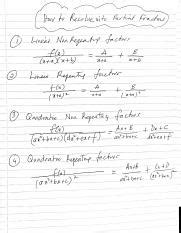 How to Resolve into Partial Fractions
① Linear Non Repeating factors
f(x)/((x+a)(x+b)) = A/(x+a) + B/(x+b)
② Linear Repeating factors
f(x)/(x+a)² = A/(x+a) + B/(x+a)²
③ Quadratic Non Repeating factors
f(x)/((ax²+bx+c)(dx²+ex+f)) = (Ax+B)/(ax²+bx+c) + (Dx+C)/(dx²+ex+f)
④ Quadratic Repeating factors
f(x)/(ax²+bx+c)² = (Ax+B)/(ax²+bx+c) + (Cx+D)/(ax²+bx+c)²